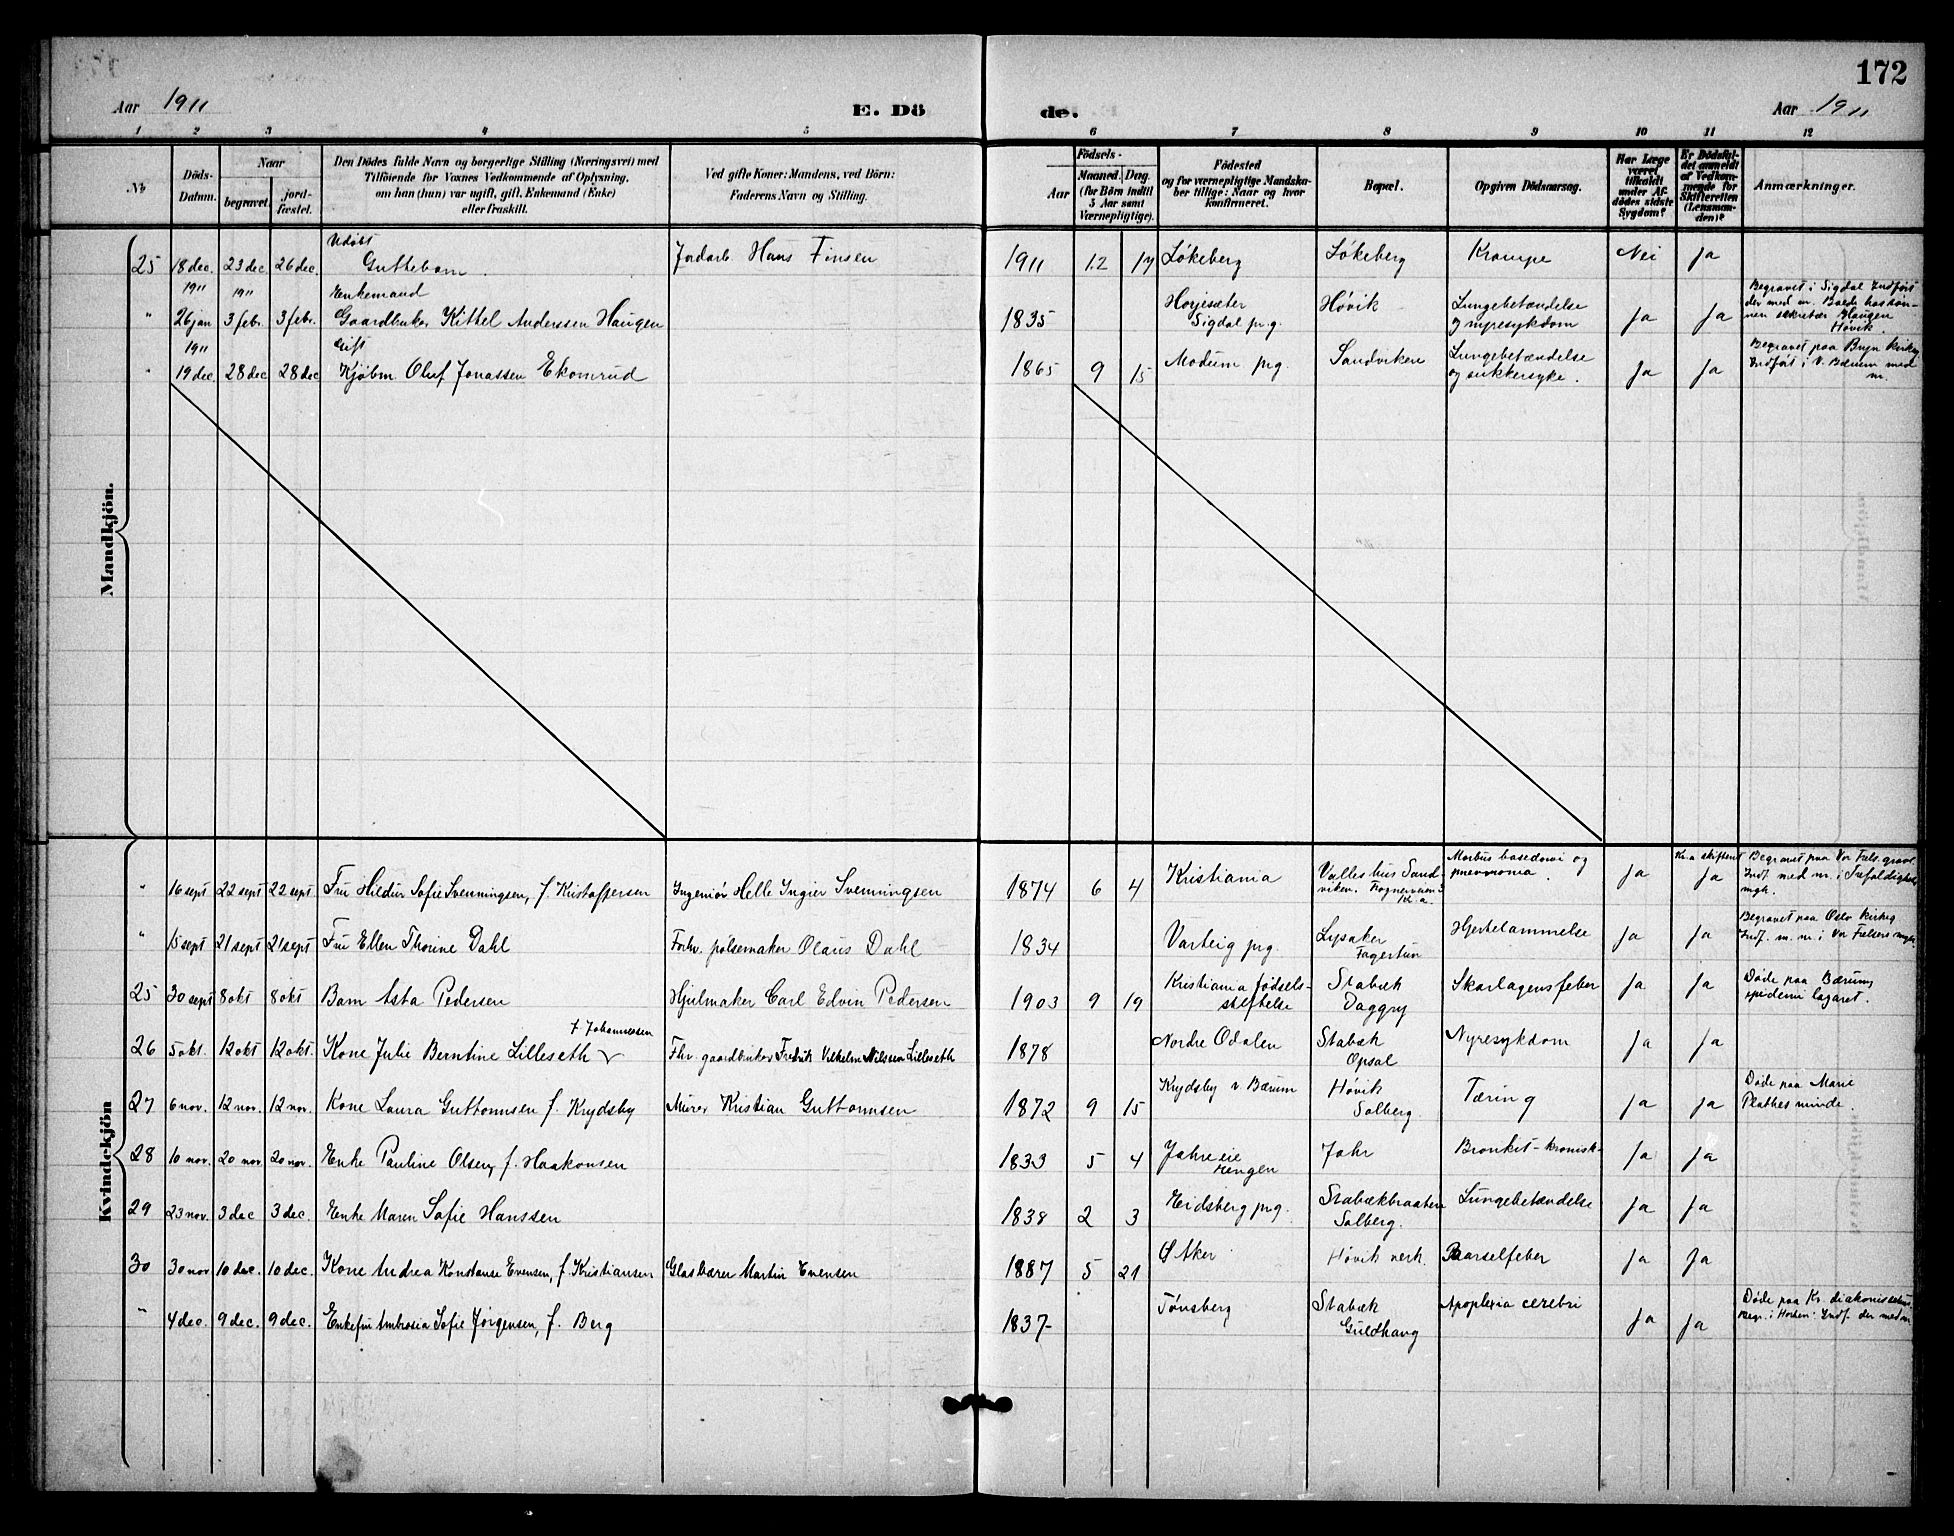 172
Aar 1911 E. Dö de. Aar 1911
1 2 3 4 5 6 7 8 9 10 11 12
No
Döds-Datum.
Naar
begravet.
jord-fæstet.
Den Dödes fulde Navn og borgerlige Stilling (Næringsvei) med
Tilföiende for Voxnes Vedkommende af Oplysning,
om han (hun) var ugift, gift, Enkemand (Enke)
eller fraskilt.
Ved gifte Koner: Mandens, ved Börn:
Faderens Navn og Stilling.
Födsels-
Aar
Maaned. Dag.
(for Börn indtil
5 Aar samt
Værnepligtige).
Födested
og for værnepligtige Mandska-
ber tillige: Naar og hvor
konfirmeret.
Bopæl.
Opgiven Dödsaarsag.
Har Læge
været
tilkaldt
under Af-
dödes sidste
Sygdom?
Er Dödsfal-
det anmeldt
af Vedkom-
mende for
Skifteretten
(Lensman-
den)?
Anmærkninger.
Mandkjön.
Udøbt
25 18 dec. 23 dec 26 dec. Guttebarn. Jordarb Hans Finsen 1911 12 17 Løkeberg Løkeberg Krampe Nei Ja
1911 1911 Enkemand
" 26 jan 3 febr. 3 febr. Gaardbruker Kittel Anderssen Haugen 1835 Høvik Lungebetændelse
Sigdal prg. og nyresykdom Ja Ja
Begravet i Sigdal Indført
der med nr. Boede hos søn-
nen sekretær Haugen
Høvik.
1911 Gift
" 19 dec. 28 dec 28 dec Kjøbm. Oluf Jonassen Ekornrud 1865 9 15 Modum prg. Sandviken Lungebetændelse
og sukkersyke. Ja Ja
Begravet paa Bryn kirkeg
Indført i V. Bærum med
nr.
Kvindekjön
" 16 sept 22 sept 22 sept Fru Hildur Sofie Svenningsen, f. Kristoffersen Ingeniør Helle Ingier Svenningsen 1874 6 4 Kristiania Valleshus Sand
viken. Kr.a.
Morbus basedowi og
pneumonia. Ja Kr.a skifteret
Ja
Begravet paa Vor Frels. gravl.
Indf. med nr. i Trefoldighed
mgh.
" 15 sept 21 sept 21 sept Fru Ellen Thorine Dahl Forhv. pølsemaker Olaus Dahl 1834 Varteig prg. Lysaker
Fagertun
Hjertelammelse Ja Ja
Begravet paa Oslo kirkeg
Indf. m. nr. i Vor Frelsers mgh.
25 30 sept 8 okt 8 okt Barn Asta Pedersen Hjulmaker Carl Edvin Pedersen 1903 9 19 Kristiania fødsels-
stiftelse
Stabæk
Daggry
Skarlagensfeber Ja Ja
Døde paa Bærums
epidemi lazaret.
f. Johannessen
26 5 okt. 12 okt 12 okt. Kone Julie Berntine Lilleseth Fhv. gaardbruker Fredrik Vilhelm Nilssen Lilleseth 1878 Nordre Odalen Stabæk
Opsal
Nyresykdom Ja Ja
27 6 nov. 12 nov. 12 nov. Kone Laura Guttormsen f. Krydsby Murer Kristian Guttormsen 1872 9 15 Krydsby v. Bærum Høvik
Solberg
Tæring Ja Ja
Døde paa Marie
Plathes minde.
28 10 nov. 20 nov 20 nov. Enke Pauline Olsen, f. Haakonsen 1833 5 4 Jahr eie
Jahr Bronkit - kronisk- Ja Ja
29 23 nov. 3 dec 3 dec. Enke Maren Sofie Hanssen 1838 2 3 Eidsberg prg. Stabækbraaten
Solberg.
Lungebetændelse Ja Ja
30 30 nov 10 dec. 10 dec. Kone Andrea Konstanse Evensen, f. Kristiansen Glasbærer Martin Evensen 1887 5 21 Ø. Aker Høvik verk Barselfeber Ja Ja
" 4 dec. 9 dec. 9 dec. Enkefru Ambrosia Sofie Jørgensen, f. Berg 1837 Tønsberg Stabæk
Guldhaug
Apoplexia cerebri Ja Ja
Døde paa Kr. diakonissehus.
Begr. i Horten. Indf. der med nr